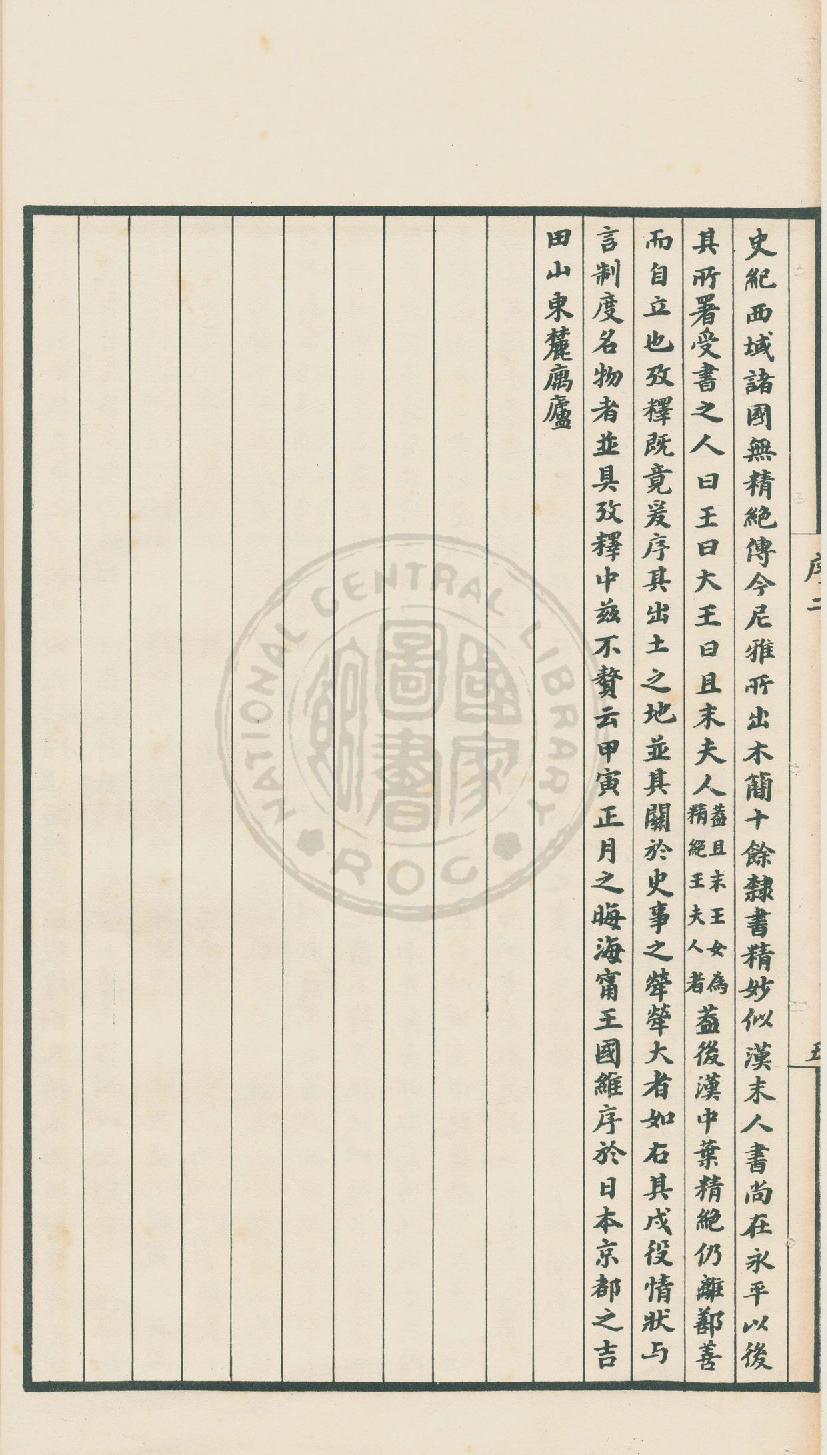 史紀西域諸國無精絕傳今尼雅所出木簡十餘隸書精妙似漢末人書尚在永平以後
其所署受書之人曰王曰大王曰且末夫人蓋且末王女為精絕王夫人者蓋後漢中葉精絕仍離鄯善
而自立也攷釋既竟爰序其出土之地並其關於史事之犖犖大者如右其戍役情狀与
言制度名物者並具攷釋中茲不贅云甲寅正月之晦海甯王國維序於日本京都之吉
田山東麓寓廬
序二
五
NATIONAL CENTRAL LIBRARY
國家圖書館
ROC